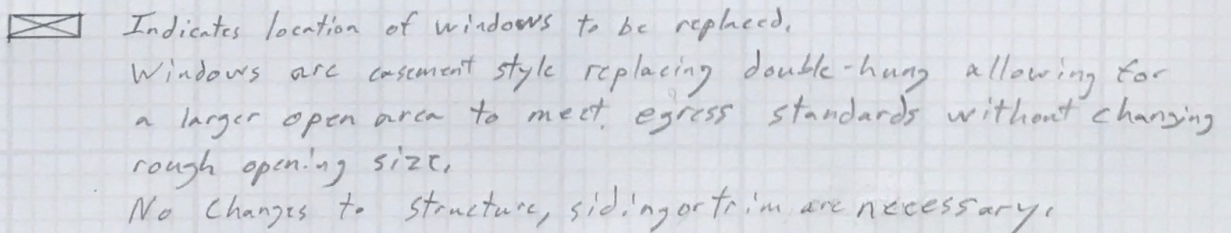 Indicates location of windows to be replaced.
Windows are casement style replacing double-hung allowing for
a larger open area to meet egress standards without changing
rough opening size.
No changes to structure, siding or trim are necessary.